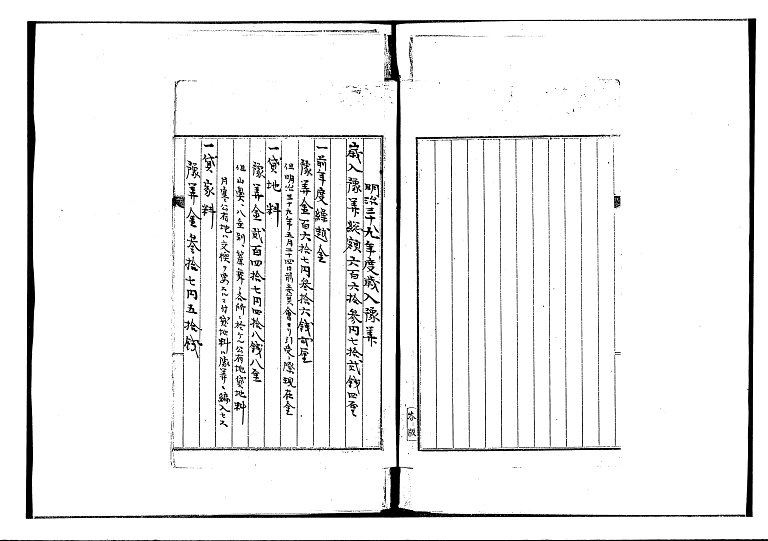 明治三十九年度歳入豫算
歳入豫算総額六百六拾参円七拾弐銭四厘
一前年度繰越金
豫算金百六拾七円参拾六銭
但明治三十九年五月二十四日前委員會ヨリ引受ノ際現在金
一貸地料
豫算金弐百四拾七円四拾八銭八厘
但山鼻、八垂別、簾舞ノ各所ニ於ケル公有地貸地料
月寒公有地ハ交換ヲ要スルニ付貸地料ハ豫算ニ編入セス
一貸家料
豫算金参拾七円五拾銭